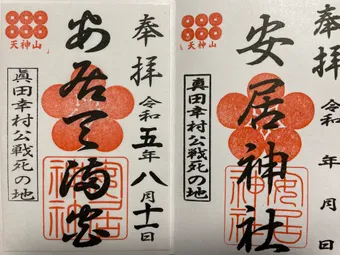 奉拝
令和五年八月十一日
安居天満宮
天神山
眞田幸村公戦死の地
安居神社
奉拝
令和 年 月 日
安居神社
天神山
眞田幸村公戦死の地
安居神社